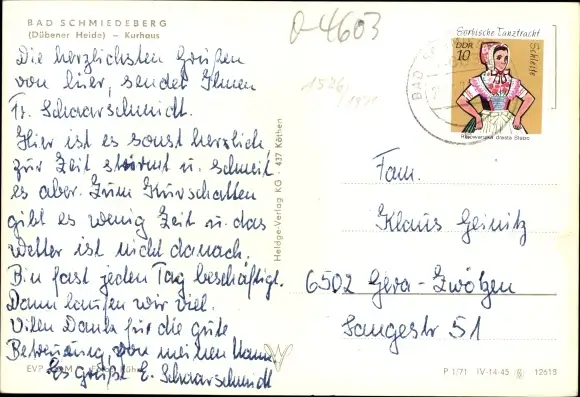 BAD SCHMIEDEBERG
(Dübener Heide) – Kurhaus
Die herzlichsten Grüßen
von hier, sendet Ihnen
Fr. Schaarschmidt.
Hier ist es sonst herzlich,
zur Zeit stürmt u. schneit
es aber. Zum Kurschatten
gibt es wenig Zeit u. das
Wetter ist nicht danach.
Bin fast jeden Tag beschäftigt.
Dann laufen wir viel.
Vilen Dank für die gute
Betreuung, von meinen Mann.
Es grüßt E. Schaarschmidt
EVP
Heldge-Verlag KG · 437 Köthen
0-4603
1526/1971
Sorbische Tanztracht
Schleife
DDR
10
BAD
Fam.
Klaus Geinitz
6502 Gera-Zwötzen
Langestr 51
P 1/71 IV-14-45 12618